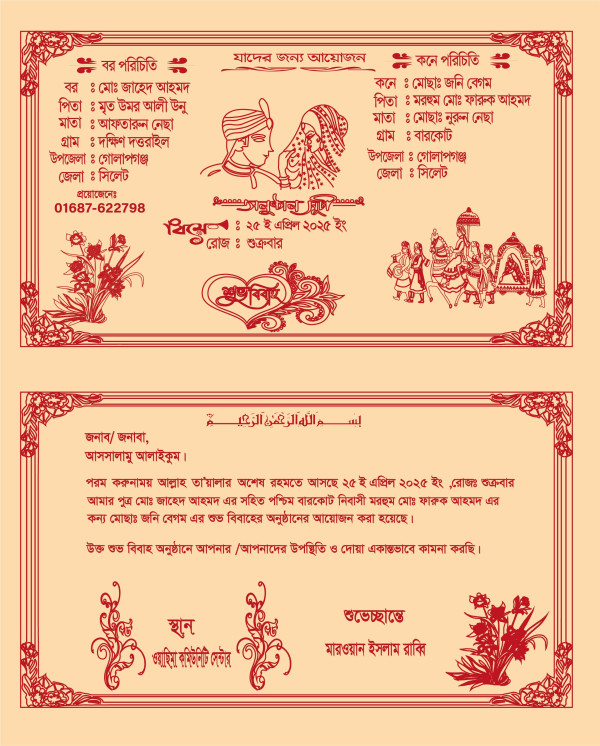 যাদের জন্য আয়োজন
বর পরিচিতি
বর : মোঃ জাহেদ আহমদ
পিতা : মৃত উমর আলী উনু
মাতা : আফতারুন নেছা
গ্রাম : দক্ষিণ দত্তরাইল
উপজেলা : গোলাপগঞ্জ
জেলা : সিলেট
প্রয়োজেনেঃ
01687-622798
কনে পরিচিতি
কনে : মোছাঃ জনি বেগম
পিতা : মরহুম মোঃ ফারুক আহমদ
মাতা : মোছাঃ নুরুন নেছা
গ্রাম : বারকোট
উপজেলা : গোলাপগঞ্জ
জেলা : সিলেট
অনুষ্ঠান সূচী
বিয়ে : ২৫ ই এপ্রিল ২০২৫ ইং
রোজ : শুক্রবার
শুভবিবাহ
بسم الله الرحمن الرحيم
জনাব/ জনাবা,
আসসালামু আলাইকুম।
পরম করুনাময় আল্লাহ তা'য়ালার অশেষ রহমতে আসছে ২৫ ই এপ্রিল ২০২৫ ইং ,রোজঃ শুক্রবার
আমার পুত্র মোঃ জাহেদ আহমদ এর সহিত পশ্চিম বারকোট নিবাসী মরহুম মোঃ ফারুক আহমদ এর
কন্য মোছাঃ জনি বেগম এর শুভ বিবাহের অনুষ্ঠানের আয়োজন করা হয়েছে।
উক্ত শুভ বিবাহ অনুষ্ঠানে আপনার /আপনাদের উপস্থিতি ও দোয়া একান্তভাবে কামনা করছি।
স্থান
ওয়াছিমা কমিউনিটি সেন্টার
শুভেচ্ছান্তে
মারওয়ান ইসলাম রাব্বি